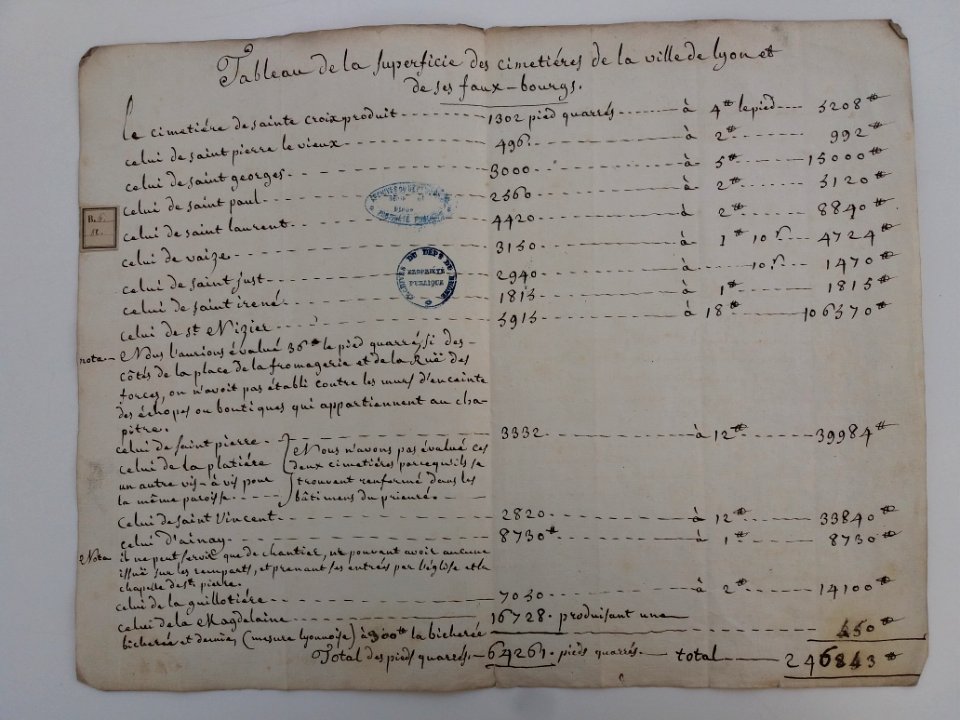 Tableau de la superficie des cimetiéres de la ville de lyon et
de ses faux-bourgs.
le cimetiére de sainte croix produit 1302 pied quarrés à 4# le pied 5208#
celui de saint pierre le vieux 496. à 2# 992#
celui de saint georges 3000 à 5# 15000#
celui de saint paul 2560 à 2# 5120#
celui de saint laurent 4420 à 2# 8840#
celui de vaize 3150 à 1# 10s 4724#
celui de saint just 2940 à 10s 1470#
celui de saint irené 1815 à 1# 1815#
celui de st Nizier 5915 à 18# 106570#
nota Nous l'aurions évalué 36# le pied quarré, si des
côtés de la place de la fromagerie et de la Ruë des
forces, on n'avoit pas établi contre les murs d'enceinte
des échopes ou boutiques qui appartiennent au cha-
pitre.
celui de saint pierre 3332 à 12# 39984#
celui de la platiére
un autre vis-à vis pour
la même paroisse
Nous n'avons pas évalué ces
deux cimetiéres parcequ'ils se
trouvent renfermé dans les
bâtimens du prieuré.
celui de saint Vincent 2820 à 12# 33840#
celui d'ainay 8730# à 1# 8730#
Nota il ne peut servir que de chantier, ne pouvant avoir aucune
issuë sur les remparts, et prenant ses entrés par l'église et la
chapelle de st. pierre.
celui de la guillotiére 7050 à 2# 14100#
celui de la Magdelaine 16728. produisant une
bicherée et demie, (mesure lyonnoise) à 300# la bicherée 450#
Total des pieds quarrés 64261. pieds quarrés. total 246843#
B. 6.
ARCHIVES DU DÉPT DU RHÔNE
PROPRIÉTÉ
PUBLIQUE
PROPRIÉTÉ PUBLIQUE